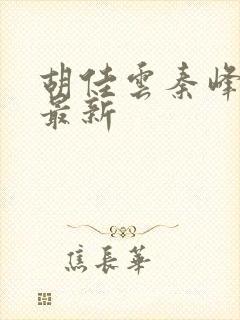 胡佳雲秦峰
最新
焦長華